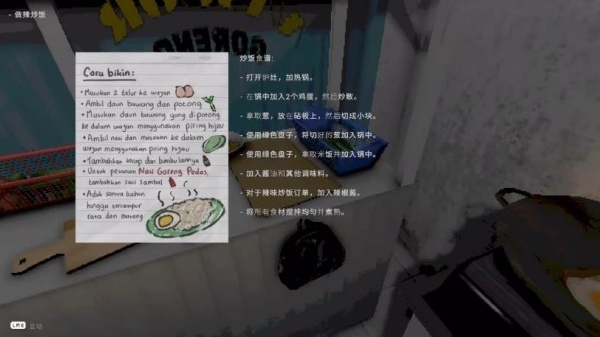 - 做辣炒饭
GORENG
Cara bikin:
• Masukan 2 telur ke wajan
• Ambil daun bawang dan potong
• Masukan daun bawang yang dipotong
ke dalam wajan menggunakan piring hijau
• Ambil nasi dan masukan ke dalam
wajan menggunakan piring hijau
• Tambahkan kecap dan bumbu lainnya
• Untuk pesanan Nasi Goreng Pedas,
tambahkan saus sambal
• Aduk semua bahan
hingga tercampur
rata dan matang
炒饭食谱:
- 打开炉灶，加热锅。
- 在锅中加入2个鸡蛋，然后炒散。
- 拿取葱，放在砧板上，然后切成小块。
- 使用绿色盘子，将切好的葱加入锅中。
- 使用绿色盘子，拿取米饭并加入锅中。
- 加入酱油和其他调味料。
- 对于辣味炒饭订单，加入辣椒酱。
- 将所有食材搅拌均匀并煮熟。
LMB 互动